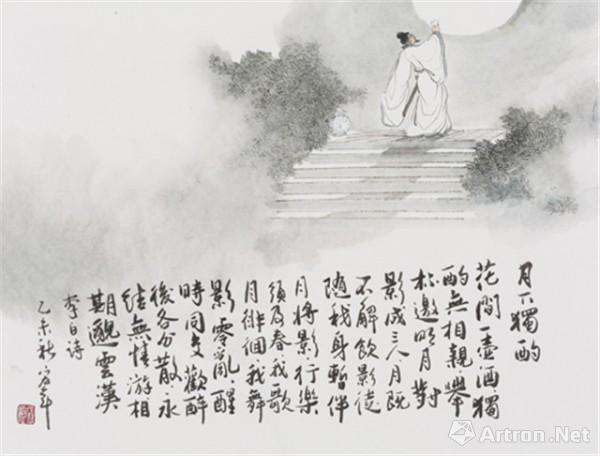 月下獨酌
花間一壺酒獨
酌無相親舉
杯邀明月對
影成三人月既
不解飲影徒
隨我身暫伴
月將影行樂
須及春我歌
月徘徊我舞
影零亂醒
時同交歡醉
後各分散永
結無情游相
期邈雲漢
李白诗
乙未秋
Artron.Net